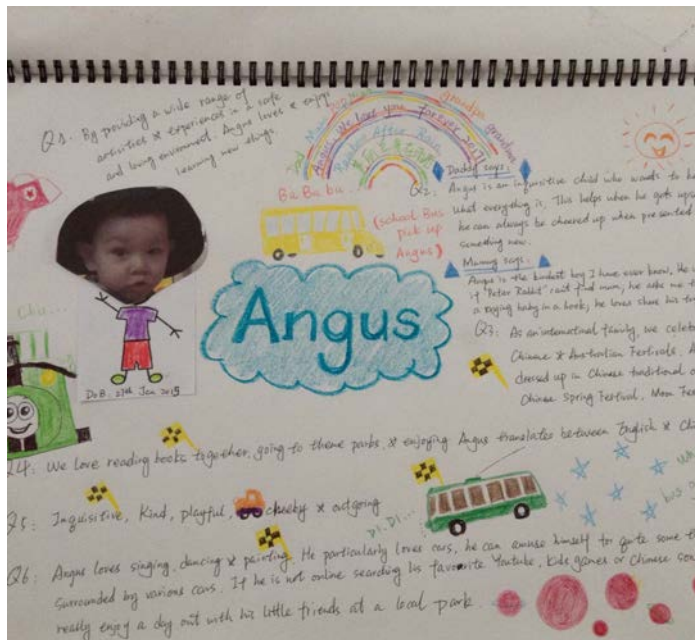 Q1. By providing a wide range of
activities & experiences in a safe
and loving environment. Angus loves & enjoys
learning new things.
grandpa grandma
Angus We love you forever 2017
Rainbow After Rain
Ba Ba bu
(School Bus
pick up
Angus)
Q2:
Daddy says:
Angus is an inquisitive child who wants to
what everything is. This helps when he gets
he can always be cheered up when presented
something new.
Mummy says:
Angus is the kindest boy I have ever know. He
if "Peter Rabbit" can't find mum; he asks me
a crying baby in a book; he loves share his
Q3: As an international family, we
Chinese & Australian Festivals.
dressed up in Chinese traditional
Chinese Spring Festival, Moon
Angus
Chu...
DoB. 27th Jan 2015
Q4: We love reading books together, going to theme parks, & enjoying Angus translates between English &
Q5: Inquisitive, Kind, playful, cheeky & outgoing
Di.Di...
Q6: Angus loves singing, dancing & painting. He particularly loves cars, he can amuse himself for quite some
surrounded by various cars. If he is not online searching his favourite Youtube, kids games or Chinese
really enjoy a day out with his little friends at a local park.